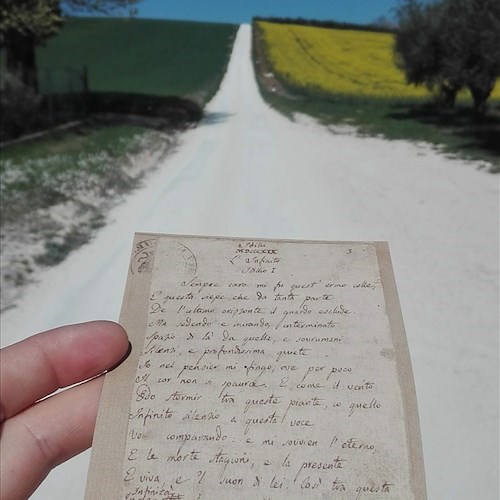 Idillio
MDCCCXIX
3
L' Infinito
Idillio I
Sempre caro mi fu quest' ermo colle,
E questa siepe, che da tanta parte
De l'ultimo orizzonte il guardo esclude.
Ma sedendo e mirando, interminato
Spazio di là da quella, e sovrumani
Silenzi, e profondissima quiete
Io nel pensier mi fingo, ove per poco
Il cor non si spaura. E come il vento
Odo stormir tra queste piante, io quello
Infinito silenzio a questa voce
Vo comparando: e mi sovvien l'eterno,
E le morte stagioni, e la presente
E viva, e 'l suon di lei. Così tra questa
Infinità